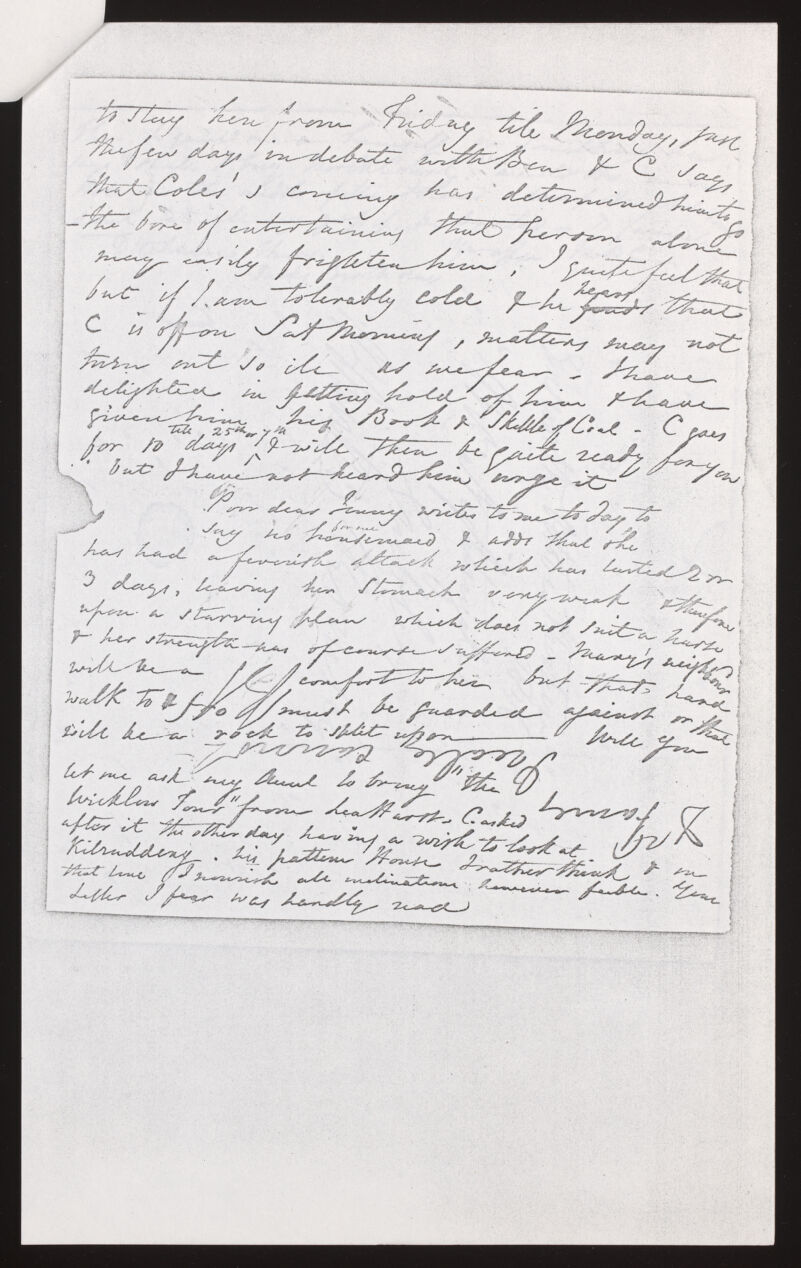 to stay here from Friday till Monday, just
the few days in debate with Ben & C says
that Coles's coming has determined him to go
– the bore of entertaining that person alone
may easily frighten him, I quite feel that
but if I am tolerably cold & he hears that
C is off on Sat Morning, matters may not
turn out so ill as we fear – I have
delighted in getting hold of him & have
given him his Book & Skuttle of Coal – C goes
for 10 days till 25th or 7th & will then be quite ready for you
but I have not heard him urge it
Poor dear Jenny writes to me today to
say no housemaid for me & adds that she
has had a feverish attack which has lasted 2 or
3 days, leaving her Stomach very weak & therefore
upon a starving plan which does not suit a nurse
& her strength has of course suffered – Mary's neighbour
will be a comfort to her but that hard
walk to & fro must be guarded against or that
will be a rock to split upon — Will you
let me ask my Aunt to bring "the
Wicklow Tour" from Lea Hurst. C asked
after it the other day having a wish to look at
Kilruddery. his pattern House I rather think & in
that line I nourish all inclinations however feeble. Your
Letter I fear was hardly read